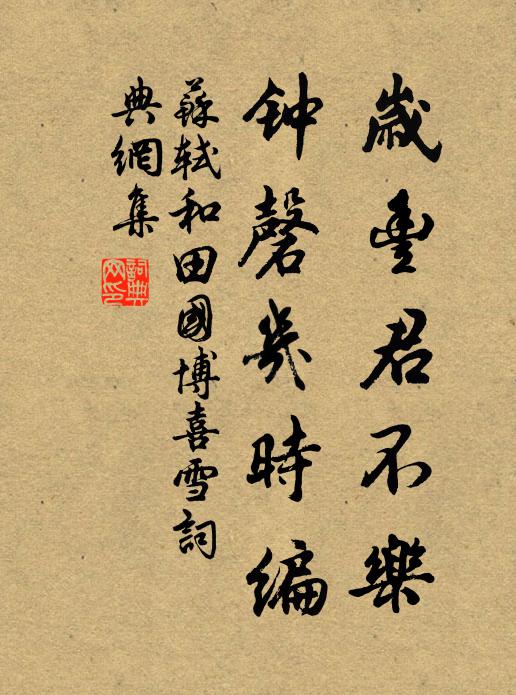 歲豊君不樂
钟磬幾時編
蘇軾和田國博喜雪詞
典網集
詞典
网印